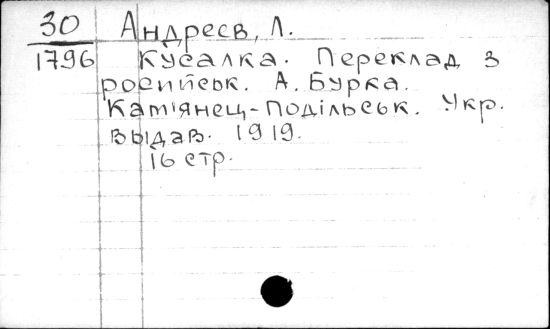 30 Андреєв, Л.
1796 Кусалка. Переклад з
російськ. А. Бурка.
Кам'янец-Подільськ. Укр.
выдав. 1919.
16 стр.